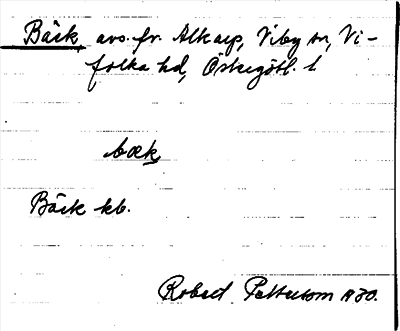 Bäck, avs. fr. Alkarp, Viby sn, Vi-
folka hd, Östergötl. l
bæk
Bäck kb.
Robert Pettersson 1930.